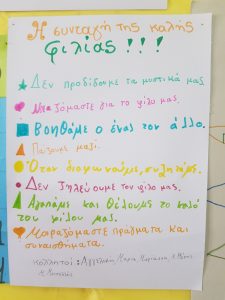 Η συνταγή της καλής
φιλίας !!!
Δεν προδίδουμε τα μυστικά μας
Νοιαζόμαστε για το φίλο μας.
Βοηθάμε ο ένας τον άλλο.
Παίζουμε μαζί.
Όταν διαφωνούμε, συζητάμε.
Δεν ζηλεύουμε τον φίλο μας.
Αγαπάμε και θέλουμε το καλό
του φίλου μας.
Μοιραζόμαστε πράγματα και
συναισθήματα.
Αγγελική, Μαρία, Μαριάννα,